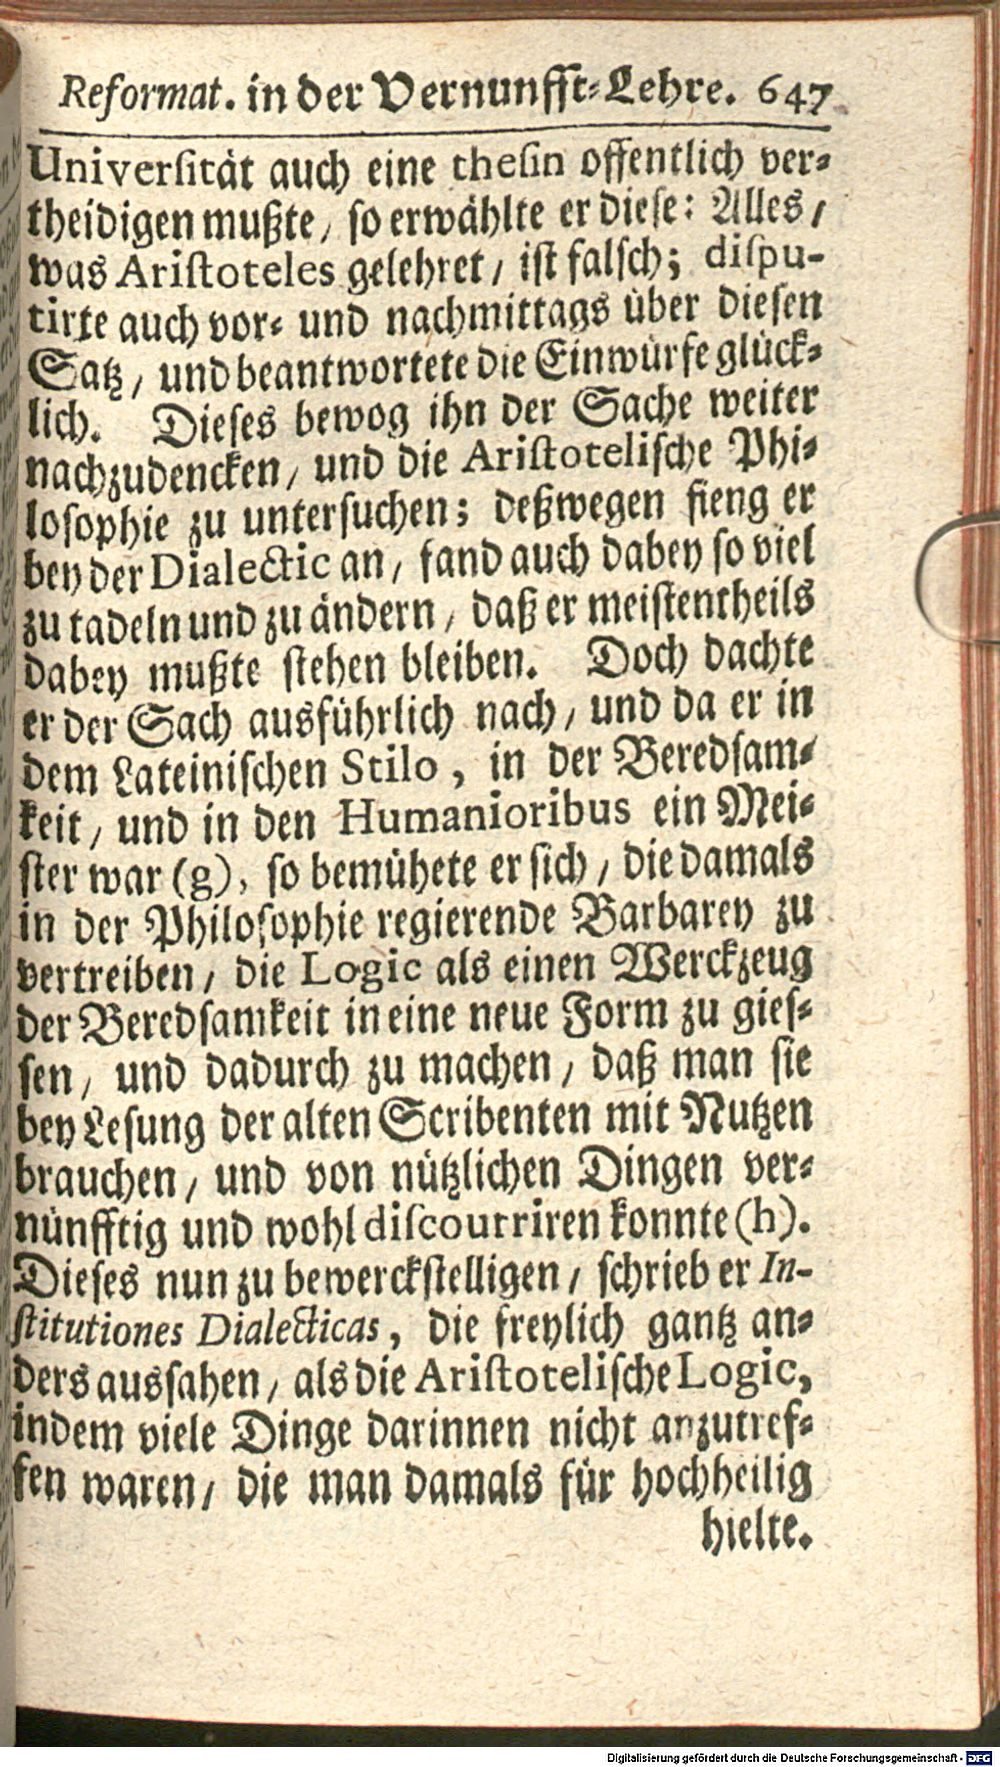 Reformat. in der Vernunfft-Lehre. 647
Universität auch eine thesin offentlich ver-
theidigen mußte, so erwählte er diese: Alles,
was Aristoteles gelehret, ist falsch; dispu-
tirte auch vor- und nachmittags über diesen
Satz, und beantwortete die Einwürfe glück-
lich. Dieses bewog ihn der Sache weiter
nachzudencken, und die Aristotelische Phi-
losophie zu untersuchen; deßwegen fieng er
bey der Dialectic an, fand auch dabey so viel
zu tadeln und zu ändern, daß er meistentheils
dabey mußte stehen bleiben. Doch dachte
er der Sach ausführlich nach, und da er in
dem Lateinischen Stilo, in der Beredsam-
keit, und in den Humanioribus ein Mei-
ster war (g), so bemühete er sich, die damals
in der Philosophie regierende Barbarey zu
vertreiben, die Logic als einen Werckzeug
der Beredsamkeit in eine neue Form zu gies-
sen, und dadurch zu machen, daß man sie
bey Lesung der alten Scribenten mit Nutzen
brauchen, und von nützlichen Dingen ver-
nünfftig und wohl discourriren konnte (h).
Dieses nun zu bewerckstelligen, schrieb er In-
stitutiones Dialecticas, die freylich gantz an-
ders aussahen, als die Aristotelische Logic,
indem viele Dinge darinnen nicht anzutref-
fen waren, die man damals für hochheilig
hielte.
Digitalisierung gefördert durch die Deutsche Forschungsgemeinschaft - DFG